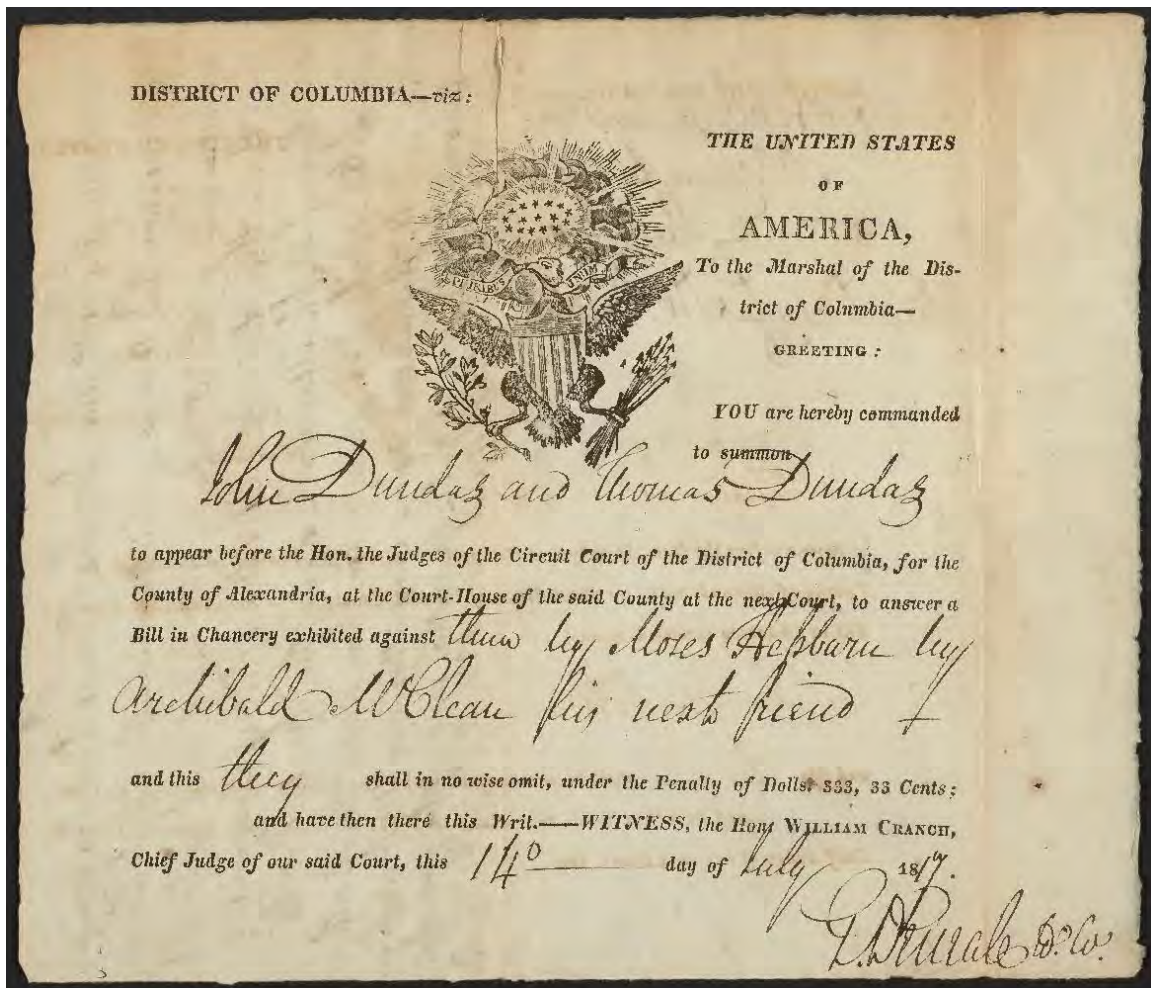 DISTRICT OF COLUMBIA—viz:
THE UNITED STATES
OF
AMERICA,
To the Marshal of the Dis-
trict of Columbia—
GREETING:
E PLURIBUS UNUM
YOU are hereby commanded
to summon
John Dundas and Thomas Dundas
to appear before the Hon. the Judges of the Circuit Court of the District of Columbia, for the
County of Alexandria, at the Court-House of the said County at the next Court, to answer a
Bill in Chancery exhibited against them by Moses Hepburn by
Archibald McClean his next friend
and this they shall in no wise omit, under the Penalty of Dolls. 333, 33 Cents;
and have then there this Writ.——WITNESS, the Hon. WILLIAM CRANCH,
Chief Judge of our said Court, this 14º day of July 1817.